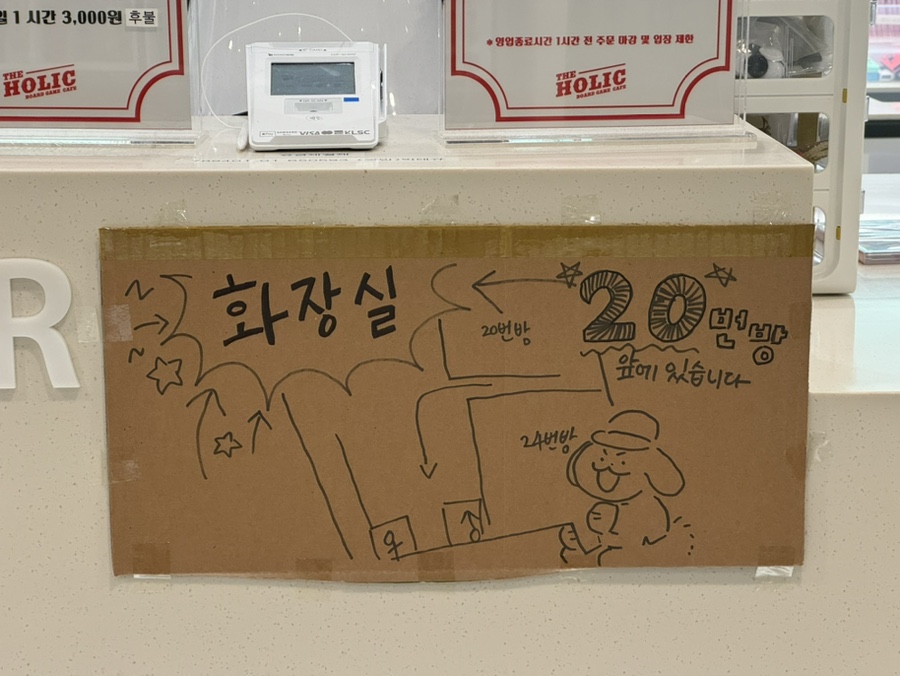 일 1 시간 3,000원 후불
THE
HOLIC
BOARD GAME CAFE
*영업종료시간 1시간 전 주문 마감 및 입장 제한
THE
HOLIC
BOARD GAME CAFE
VISA KLSC
R
화장실
20번방
20번방
앞에 있습니다
24번방